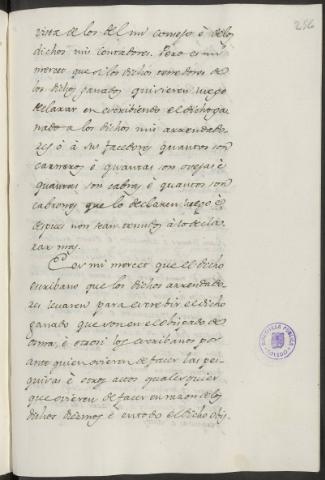 256
vista de los del mi consejo è de los
dichos mis contadores. Pero es mi
merced que si los dichos tenedores de
los dichos ganados quisieren luego
declarar en escribiendo el dicho ga-
nado a los dichos mis arrendado-
res ò à sus facedores quantos son
carneros è quantas son ovejas è
quantas son cabras è quantos son
cabrones que lo declaren luego è
despues non sean tenudos à lo decla-
rar mas.
Es mi merced que el dicho
escribano que los dichos arrendado-
res levaren para escrebir el dicho
ganado que son en el obispado de
è otrosi los escribanos por
ante quien ovieren de facer las pes-
quisas è otros actos qualesquier
que ovieren de facer en razon de los
dichos Diezmos è en todo el dicho obis-
BIBLIOTECA PUBLICA
TOLEDO